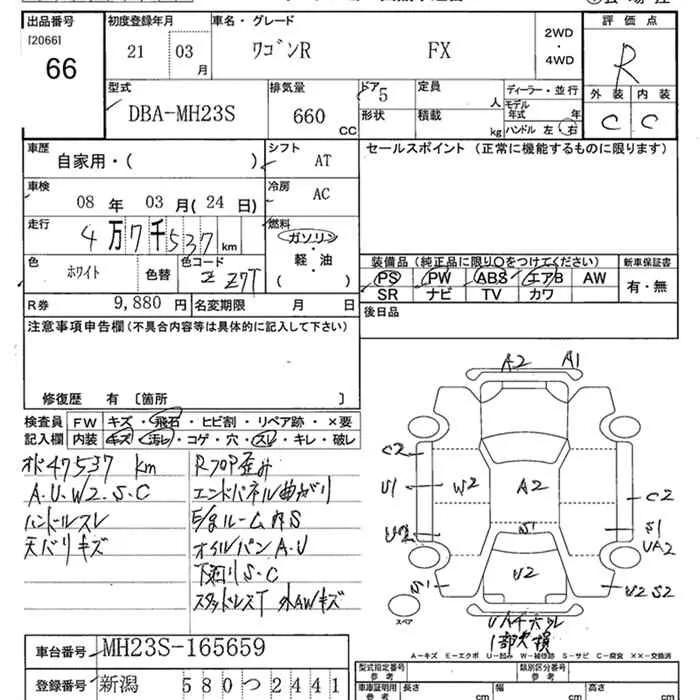 出品番号 初度登録年月 車名・グレード 2WD・4WD 評価点
[2066] 66 21 03月 ワゴンR FX R
外装 内装
C C
型式 DBA-MH23S 排気量 660 CC ドア 5 形状 定員 人 積載 kg ディーラー・並行 モデル年式 年 ハンドル 左・右
車歴 自家用・( ) シフト AT セールスポイント(正常に機能するものに限ります)
車検 08年 03月(24日) 冷房 AC
走行 4万7千537km 燃料 ガソリン・軽・油 ( )
色 ホワイト 色替 色コード Z Z7T
装備品(純正品に限り○をつけてください) 新車保証書
PS PW ABS エアB AW 有・無
SR ナビ TV カワ
R券 9,880円 名変期限 月 日 後日品
注意事項申告欄(不具合内容等は具体的に記入して下さい)
修復歴 有 [箇所
検査員記入欄 FW キズ・飛石・ヒビ割・リペア跡・×要
内装 キズ・汚レ・コゲ・穴・スレ・キレ・破レ
オド47537 km
A.U.W2.S.C
ハンドルスレ
天バリキズ
Rフロア歪み
エンドパネル曲がり
オイルパンA.U
下回りS.C
スタッドレスT 外AWキズ
A2 A1
C2
U1 W2 A2 C2
S1 S1
UA2
S1 U2 U2 S2
スペア
1部欠損
A-キズ E-エクボ U-凹み W-補修跡 S-サビ C-腐食 ××-交換済
車台番号 MH23S-165659
登録番号 新潟 580つ2441
型式指定番号 参考 類別区分番号 参考
車庫証明用 参考 長さ cm 幅 cm 高さ cm